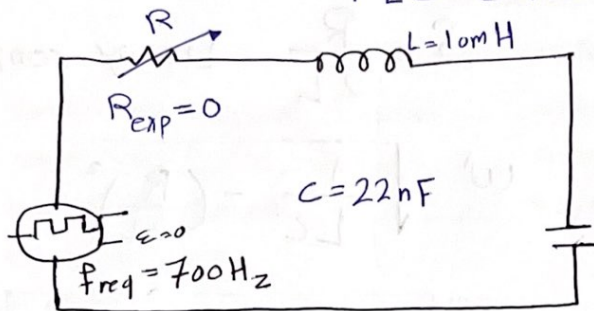 R
L=10mH
R_exp=0
C=22nF
ε=0
freq=700Hz